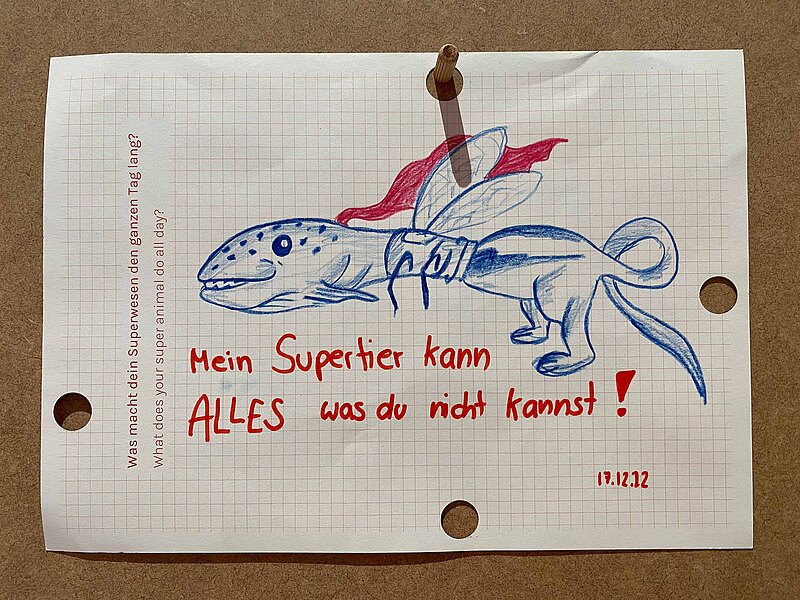 Was macht dein Superwesen den ganzen Tag lang?
What does your super animal do all day?
Mein Supertier kann
ALLES was du nicht kannst!
17.12.22